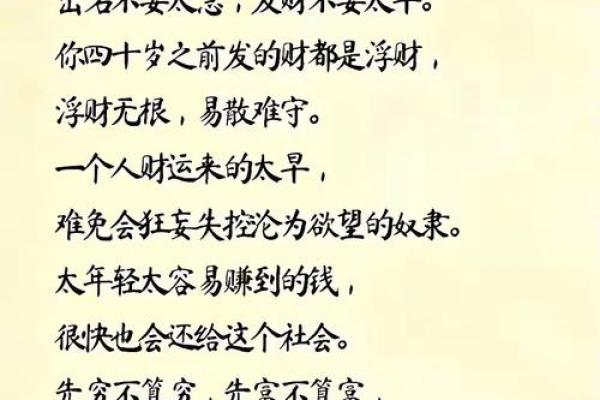 出名不要太急，发财不要太早。
你四十岁之前发的财都是浮财，
浮财无根，易散难守。
一个人财运来的太早，
难免会狂妄失控沦为欲望的奴隶。
太年轻太容易赚到的钱，
很快也会还给这个社会。
先穷不算穷，先富不算富，